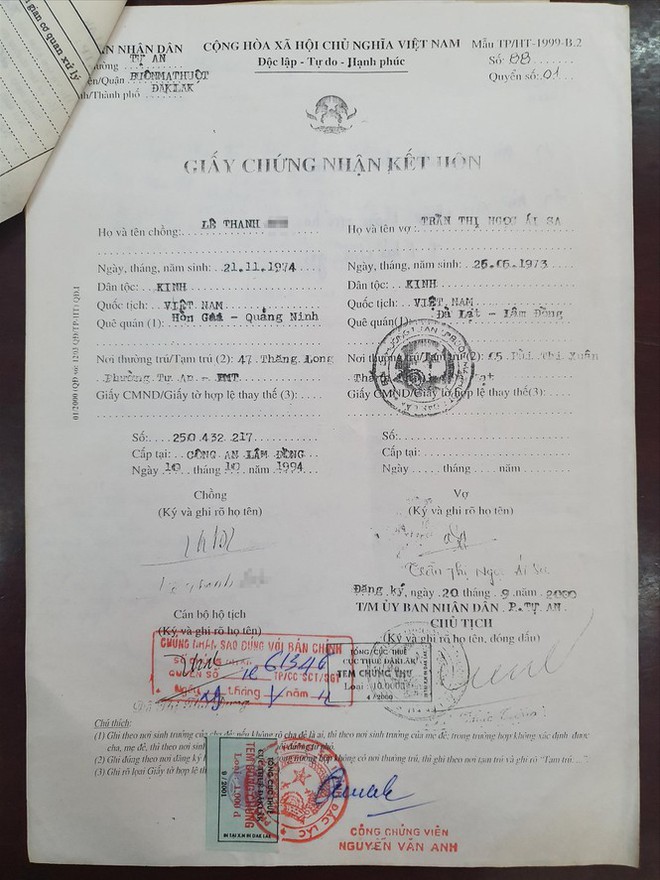 gian cơ quan xử lý
ÂN NHÂN DÂN
CỘNG HÒA XÃ HỘI CHỦ NGHĨA VIỆT NAM
Mẫu TP/HT-1999-B.2
ường TỰ AN
Độc lập - Tự do - Hạnh phúc
Số: 88
ện/Quận BUÔNMATHUỘT
Quyển số: 01
nh/Thành phố ĐAKLAK
GIẤY CHỨNG NHẬN KẾT HÔN
Họ và tên chồng: LÊ THANH
Họ và tên vợ: TRẦN THỊ NGỌC ÁI SA
Ngày, tháng, năm sinh: 21.11.1974
Ngày, tháng, năm sinh: 25.05.1973
Dân tộc: KINH
Dân tộc: KINH
Quốc tịch: VIỆT NAM
Quốc tịch: VIỆT NAM
Quê quán(1): Hòn Gai - Quảng Ninh
Quê quán(1): Đà Lạt - Lâm Đồng
Nơi thường trú/Tạm trú (2): 47 Thăng Long
Nơi thường trú/Tạm trú(2): Bùi Thị Xuân
Phường Tự An - BMT
Giấy CMND/Giấy tờ hợp lệ thay thế (3):
Giấy CMND/Giấy tờ hợp lệ thay thế(3):
Số: 250.432.217
Số:
Cấp tại: CÔNG AN LÂM ĐỒNG
Cấp tại:
Ngày 10 tháng 10 năm 1994
Ngày tháng năm
Chồng
Vợ
(Ký và ghi rõ họ tên)
(Ký và ghi rõ họ tên)
Trần Thị Ngọc Ái Sa
Đăng ký, ngày 20 tháng 9 năm 2000
Cán bộ hộ tịch
T/M ỦY BAN NHÂN DÂN P.TỰ AN
CHỦ TỊCH
(Ký và ghi rõ họ tên)
(Ký và ghi rõ họ tên, đóng dấu)
CHỨNG NHẬN SAO ĐÚNG VỚI BẢN CHÍNH
61346
QUYỂN SỐ TP/CC SCT/SGT
Ngày tháng năm
TỔNG CỤC THUẾ
CỤC THUẾ ĐAKLAK
TEM CHỨNG THƯ
Loại: 10.000đ
4/2000
Chú thích:
(1) Ghi theo nơi sinh trưởng của cha đẻ; nếu không rõ cha đẻ là ai, thì theo nơi sinh trưởng của mẹ đẻ; trong trường hợp không xác định được cha, mẹ đẻ, thì theo nơi sinh
(2) Ghi đúng theo nơi đăng ký hợp không có nơi thường trú, thì ghi theo nơi tạm trú và ghi rõ "Tạm trú ...".
(3) Ghi rõ loại Giấy tờ hợp lệ
TỔNG CỤC THUẾ
9/2001
ĐẮC LẮC
CÔNG CHỨNG VIÊN
NGUYỄN VÂN ANH